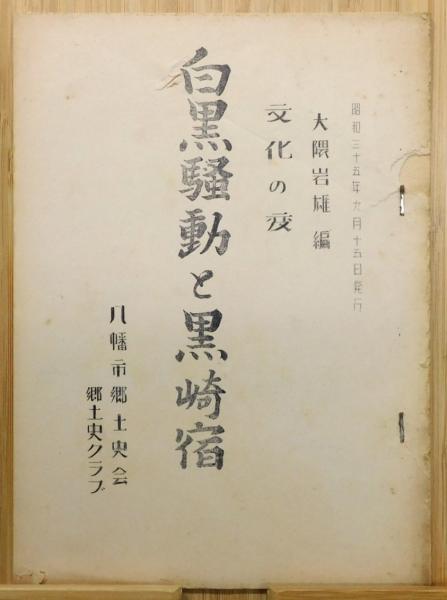 昭和三十五年九月十五日発行
大隈岩雄編
文化の変
白黒騒動と黒崎宿
八幡市郷土史会
郷土史クラブ